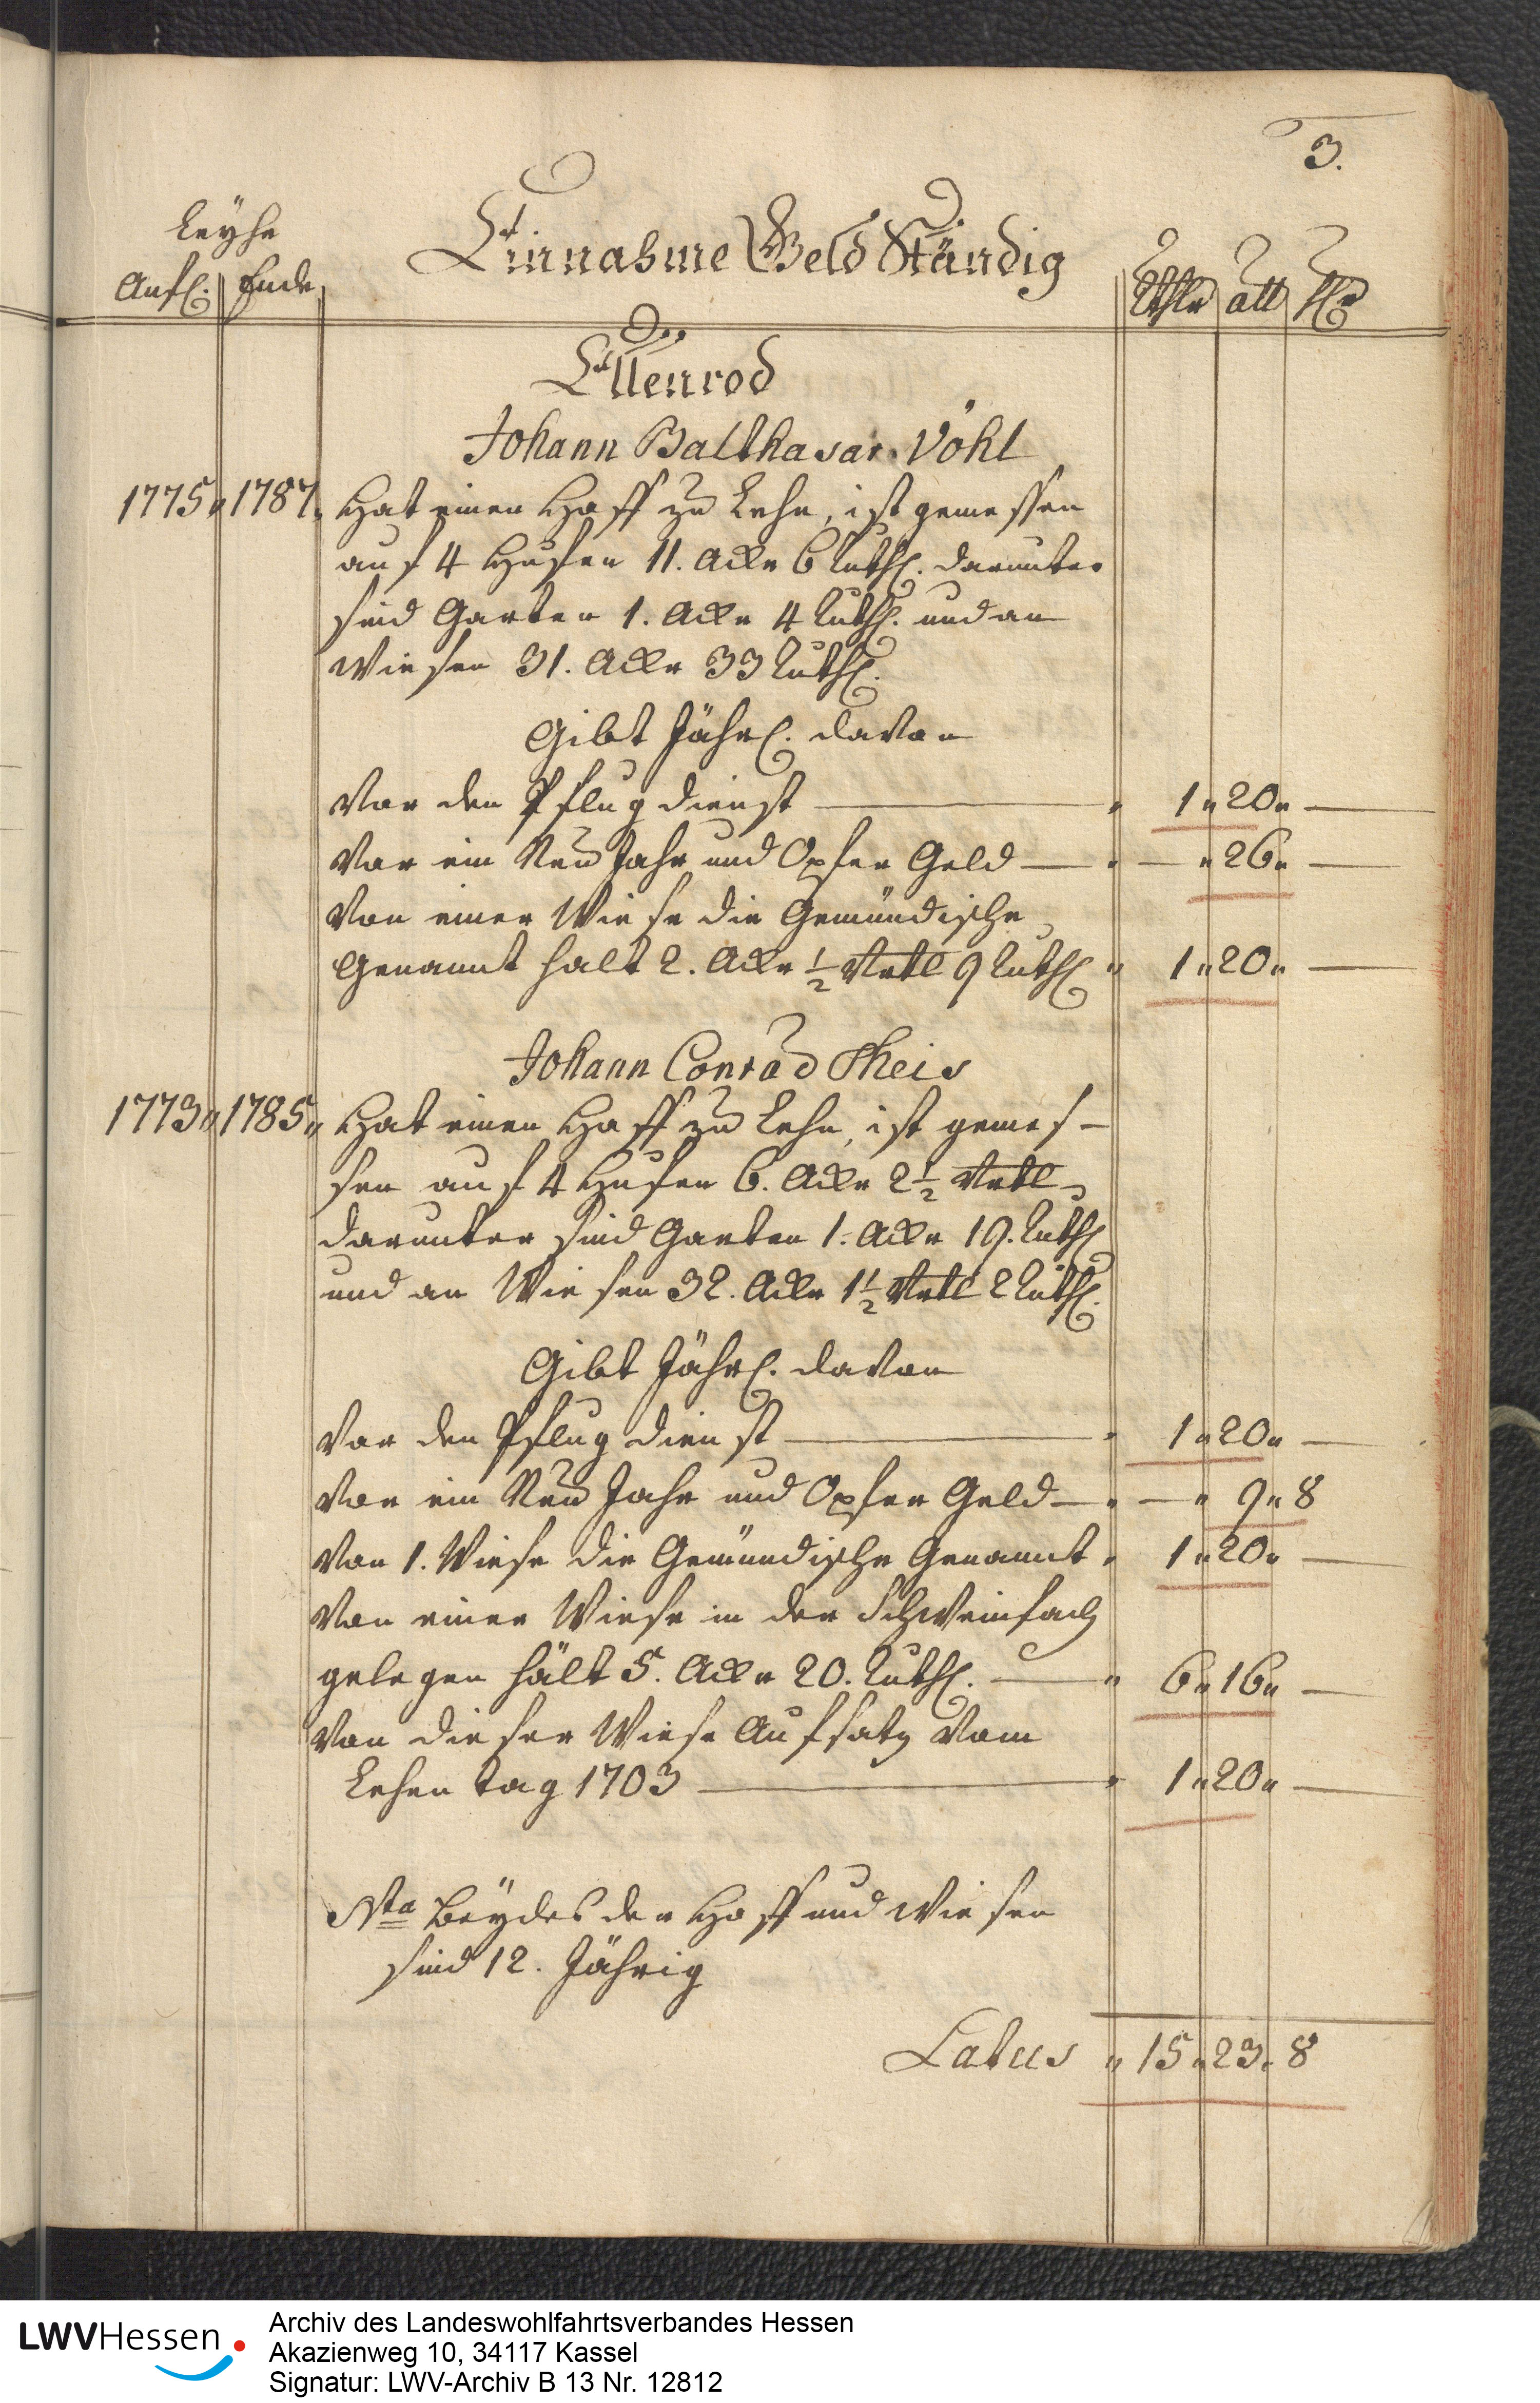 3.
Leyhe
Einnahme Geld Ständig
Anf. Ende
Rthlr alb hlr
Ellenrod
Johann Balthasar Vöhl
1775 " 1787 " Hat einen Hoff zu Lehn, ist gemessen
auf 4 Hufen 11. Ackr 6 Ruth. darunter
sind Garten 1. Ackr 4 Ruth. und an
Wiesen 31. Ackr 33 Ruth.
Gibt Jährl. davon
Vor den Pflug dienst — " 1 " 20 " —
Vor ein Neu Jahr und Opfer Geld — " — " 26 " —
Von einer Wiese die Gemündische
Genannt halt 2. Ackr ½ Vrtl 9 Ruth " 1 " 20 " —
Johann Conrad Theis
1773 " 1785 " Hat einen Hoff zu Lehn, ist gemes-
sen auf 4 Hufen 6. Ackr 2½ Vrtl
darunter sind Garten 1. Ackr 19. Ruth
und an Wiesen 32. Ackr 1½ Vrtl 2 Ruth.
Gibt Jährl. davon
Vor den Pflug dienst — " 1 " 20 " —
Vor ein Neu Jahr und Opfer Geld — " — " 9 " 8
Von 1. Wiese die Gemündische Genannt " 1 " 20 " —
Von einer Wiese in der Schweinfach
gelegen hält 5. Ackr 20. Ruth. — " 6 " 16 " —
Von dieser Wiese Aufsatz Vom
Lehen tag 1703 — " 1 " 20 " —
Nta Beydes der Hoff und Wiesen
sind 12. Jährig
Latus " 15 " 23 " 8
LWVHessen
Archiv des Landeswohlfahrtsverbandes Hessen
Akazienweg 10, 34117 Kassel
Signatur: LWV-Archiv B 13 Nr. 12812